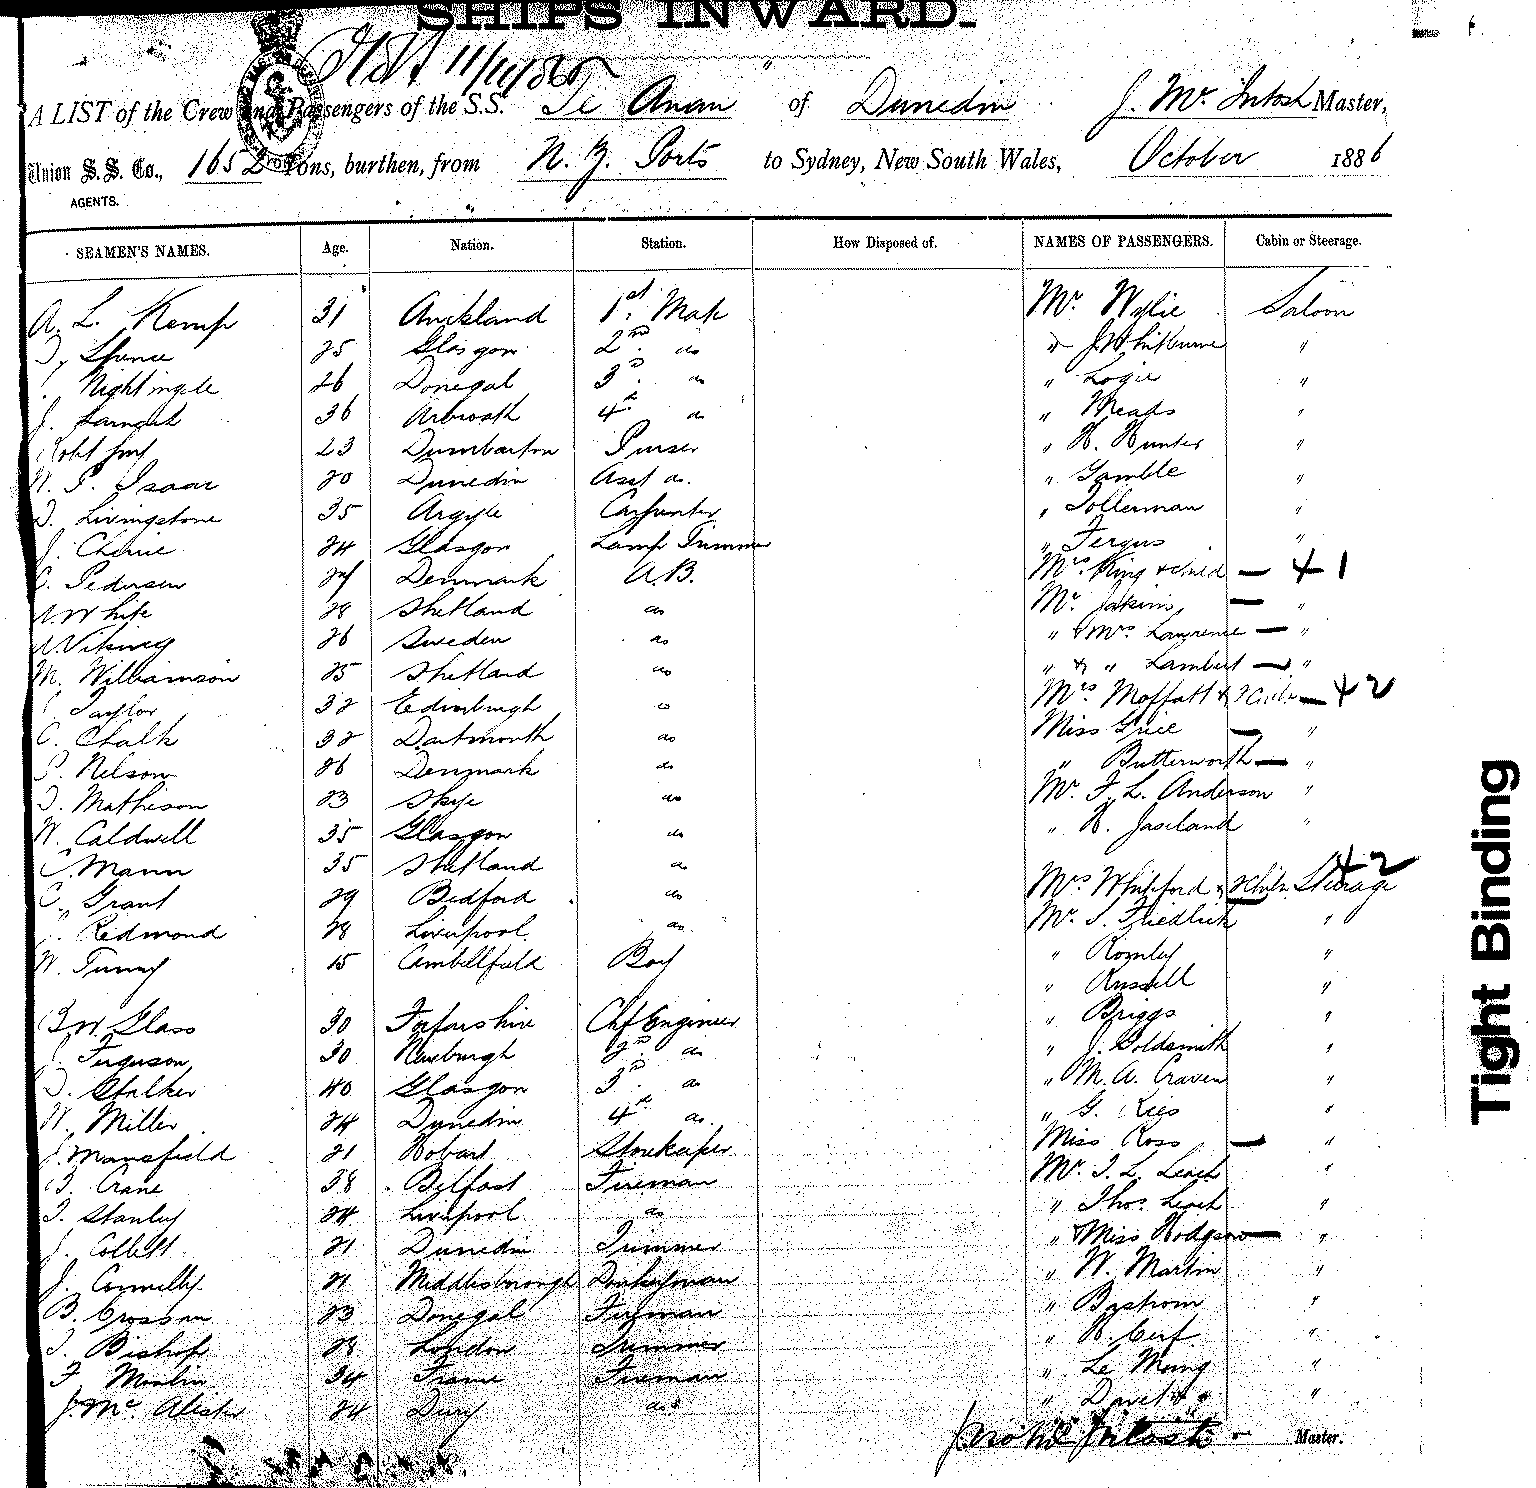 SHIPS INWARD.
A LIST of the Crew and Passengers of the S.S. Te Anau of Dunedin J. McIntosh Master,
Union S.S. Co., 1652 Tons, burthen, from N. Z. Ports to Sydney, New South Wales, October 1886
AGENTS.
SEAMEN'S NAMES. Age. Nation. Station. How Disposed of. NAMES OF PASSENGERS. Cabin or Steerage.
A. L. Kemp 31 Auckland 1st Mate Mr Wylie Saloon
Spence 25 Glasgow 2nd do " J Whitburne "
Nightingale 26 Donegal 3rd do " Logie "
J. 36 Arbroath 4th do " Meads "
Robt 23 Dumbarton Purser " H. Hunter "
Isaac 20 Dunedin Asst do. " Gamble "
D. Livingstone 35 Argyle Carpenter " Tollerman "
J. 24 Glasgow Lamp Trimmer " Fergus "
Pedersen Denmark A.B. Mrs King & child — + 1
White 28 Shetland do Mr. Jakins — "
26 Sweden do " & Mrs Lawrence — "
M. Williamson 25 Shetland do " & " Lambert — "
Taylor 32 Edinburgh do Mrs Moffatt & 2 — + 2
C. Chalk 32 Dartmouth do Miss Grice — "
P. Nelson 26 Denmark do " Butterworth — "
Mathison 23 Skye do Mr. F. L. Anderson "
W. Caldwell 35 Glasgow do " H. Jaseland "
Mann 35 Shetland do
+ 2
C. Grant 29 Bedford do Mrs & 2 Steerage
J. Redmond 28 Liverpool do Mr. "
W. Tunny 15 Cambellfield Boy " Romley "
" Russell "
Glass 30 Forfarshire Chf Engineer " Briggs "
Ferguson 30 Newburgh 2nd do " J. Goldsmith "
Stalker 40 Glasgow 3rd do " M. A. Craven "
W. Miller 24 Dunedin 4th do. " G. "
J. Mansfield 21 Hobart Storekeeper Miss Ross — "
Crane 38 Belfast Fireman Mr. T. L. Leach "
Stanley 24 Liverpool do " Thos. Leach "
J. Collett 21 Dunedin Trimmer " & Miss Hodgson — "
J. Connelly 21 Middlesborough Donkeyman " W. Martin "
B. Crossan 23 Donegal Fireman " Bystrom "
Bishop 28 London Trimmer " H. Cerf "
F. 34 France Fireman " Le "
J. Mc 24 do " "
Master.
Tight Binding